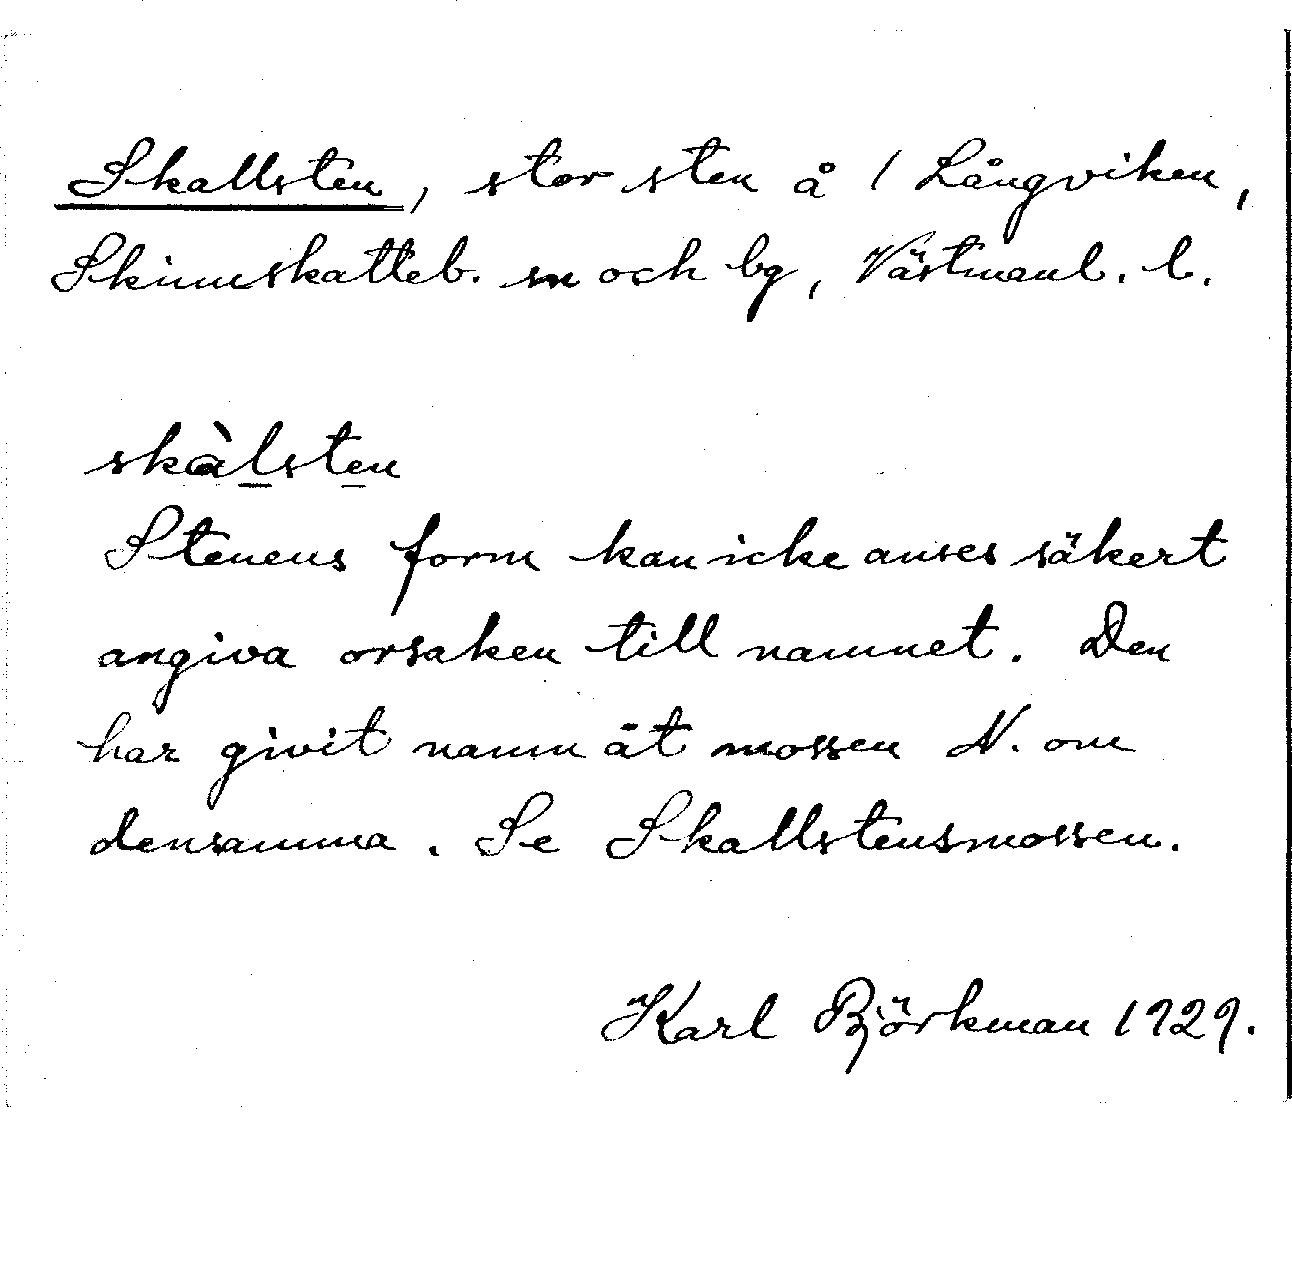 Skallsten, stor sten å 1 Långviken,
Skinnskatteb. sn och bg, Västmanl. l.
skàlsten
Stenens form kan icke anses säkert
angiva orsaken till namnet. Den
har givit namn åt mossen N. om
densamma. Se Skallstensmossen.
Karl Björkman 1929.